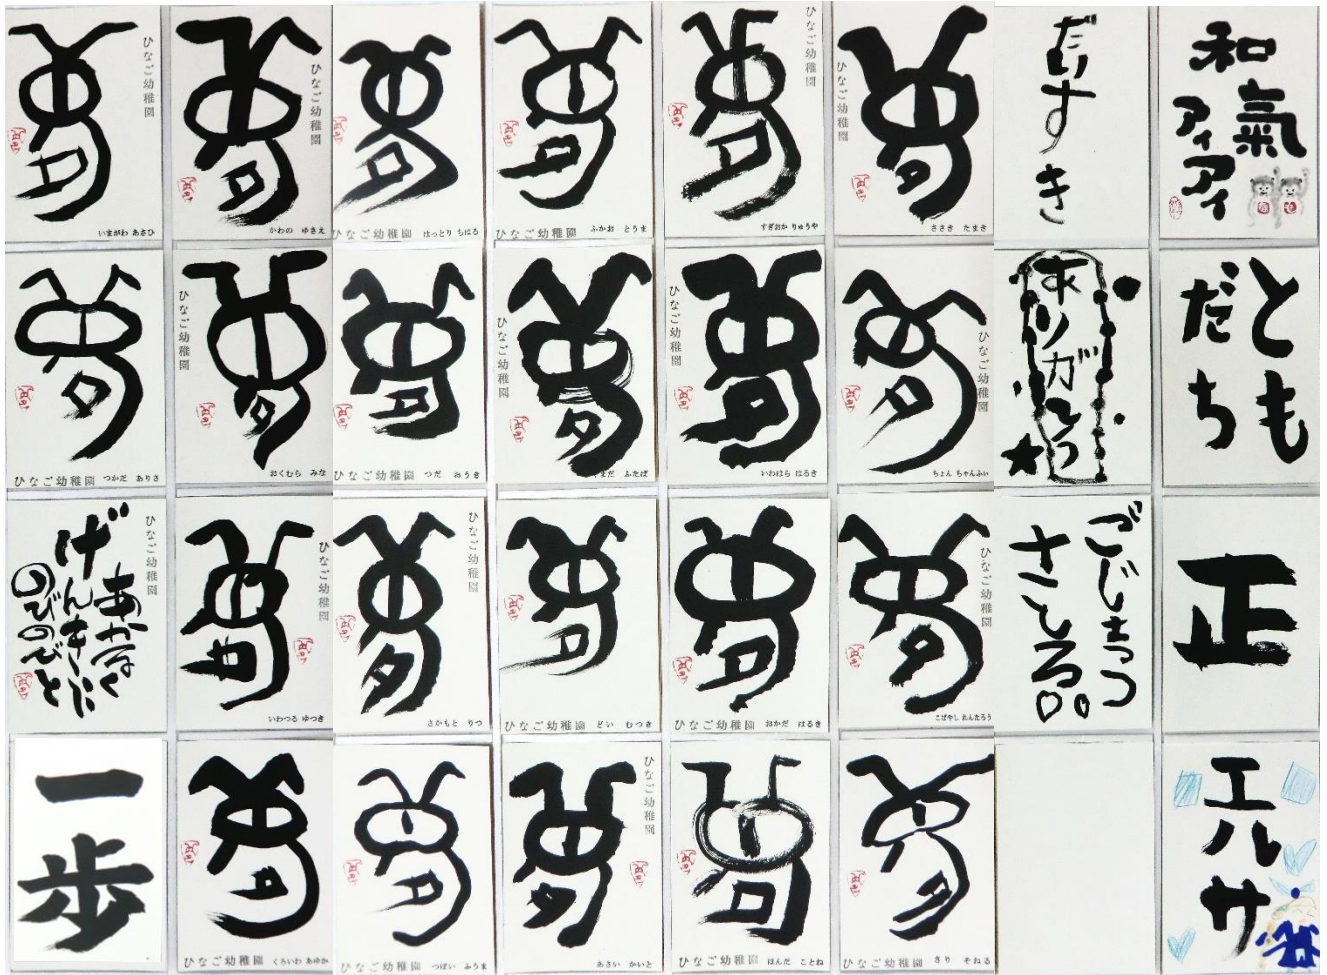 夢
ひなご幼稚園
いまがわ あさひ
夢
ひなご幼稚園
かわの ゆきえ
夢
ひなご幼稚園 はっとり ちはる
夢
ひなご幼稚園 ふかお とうま
夢
ひなご幼稚園
すぎおか りゅうや
夢
ひなご幼稚園
ささき たまき
だいすき
和氣
アィアィ
夢
ひなご幼稚園 つかだ ありさ
夢
ひなご幼稚園
おくむら みな
夢
ひなご幼稚園 つだ おうき
夢
ひなご幼稚園
ふたば
夢
ひなご幼稚園
いわはら はるき
夢
ひなご幼稚園
ちょん ちゃんふぃ
ありがとう
とも
だち
ひなご幼稚園
あかるく
げんきに
のびのびと
夢
ひなご幼稚園
いわつる ゆづき
夢
ひなご幼稚園
さかもと りつ
夢
ひなご幼稚園 どい むつき
夢
ひなご幼稚園 おかだ はるき
夢
ひなご幼稚園
こばやし れんたろう
さとる
正
一歩
夢
ひなご幼稚園 くろいわ あゆか
夢
ひなご幼稚園 つぼい
夢
ひなご幼稚園
あさい かいと
夢
ひなご幼稚園 ほんだ ことね
夢
ひなご幼稚園 きり そねる
エルサ